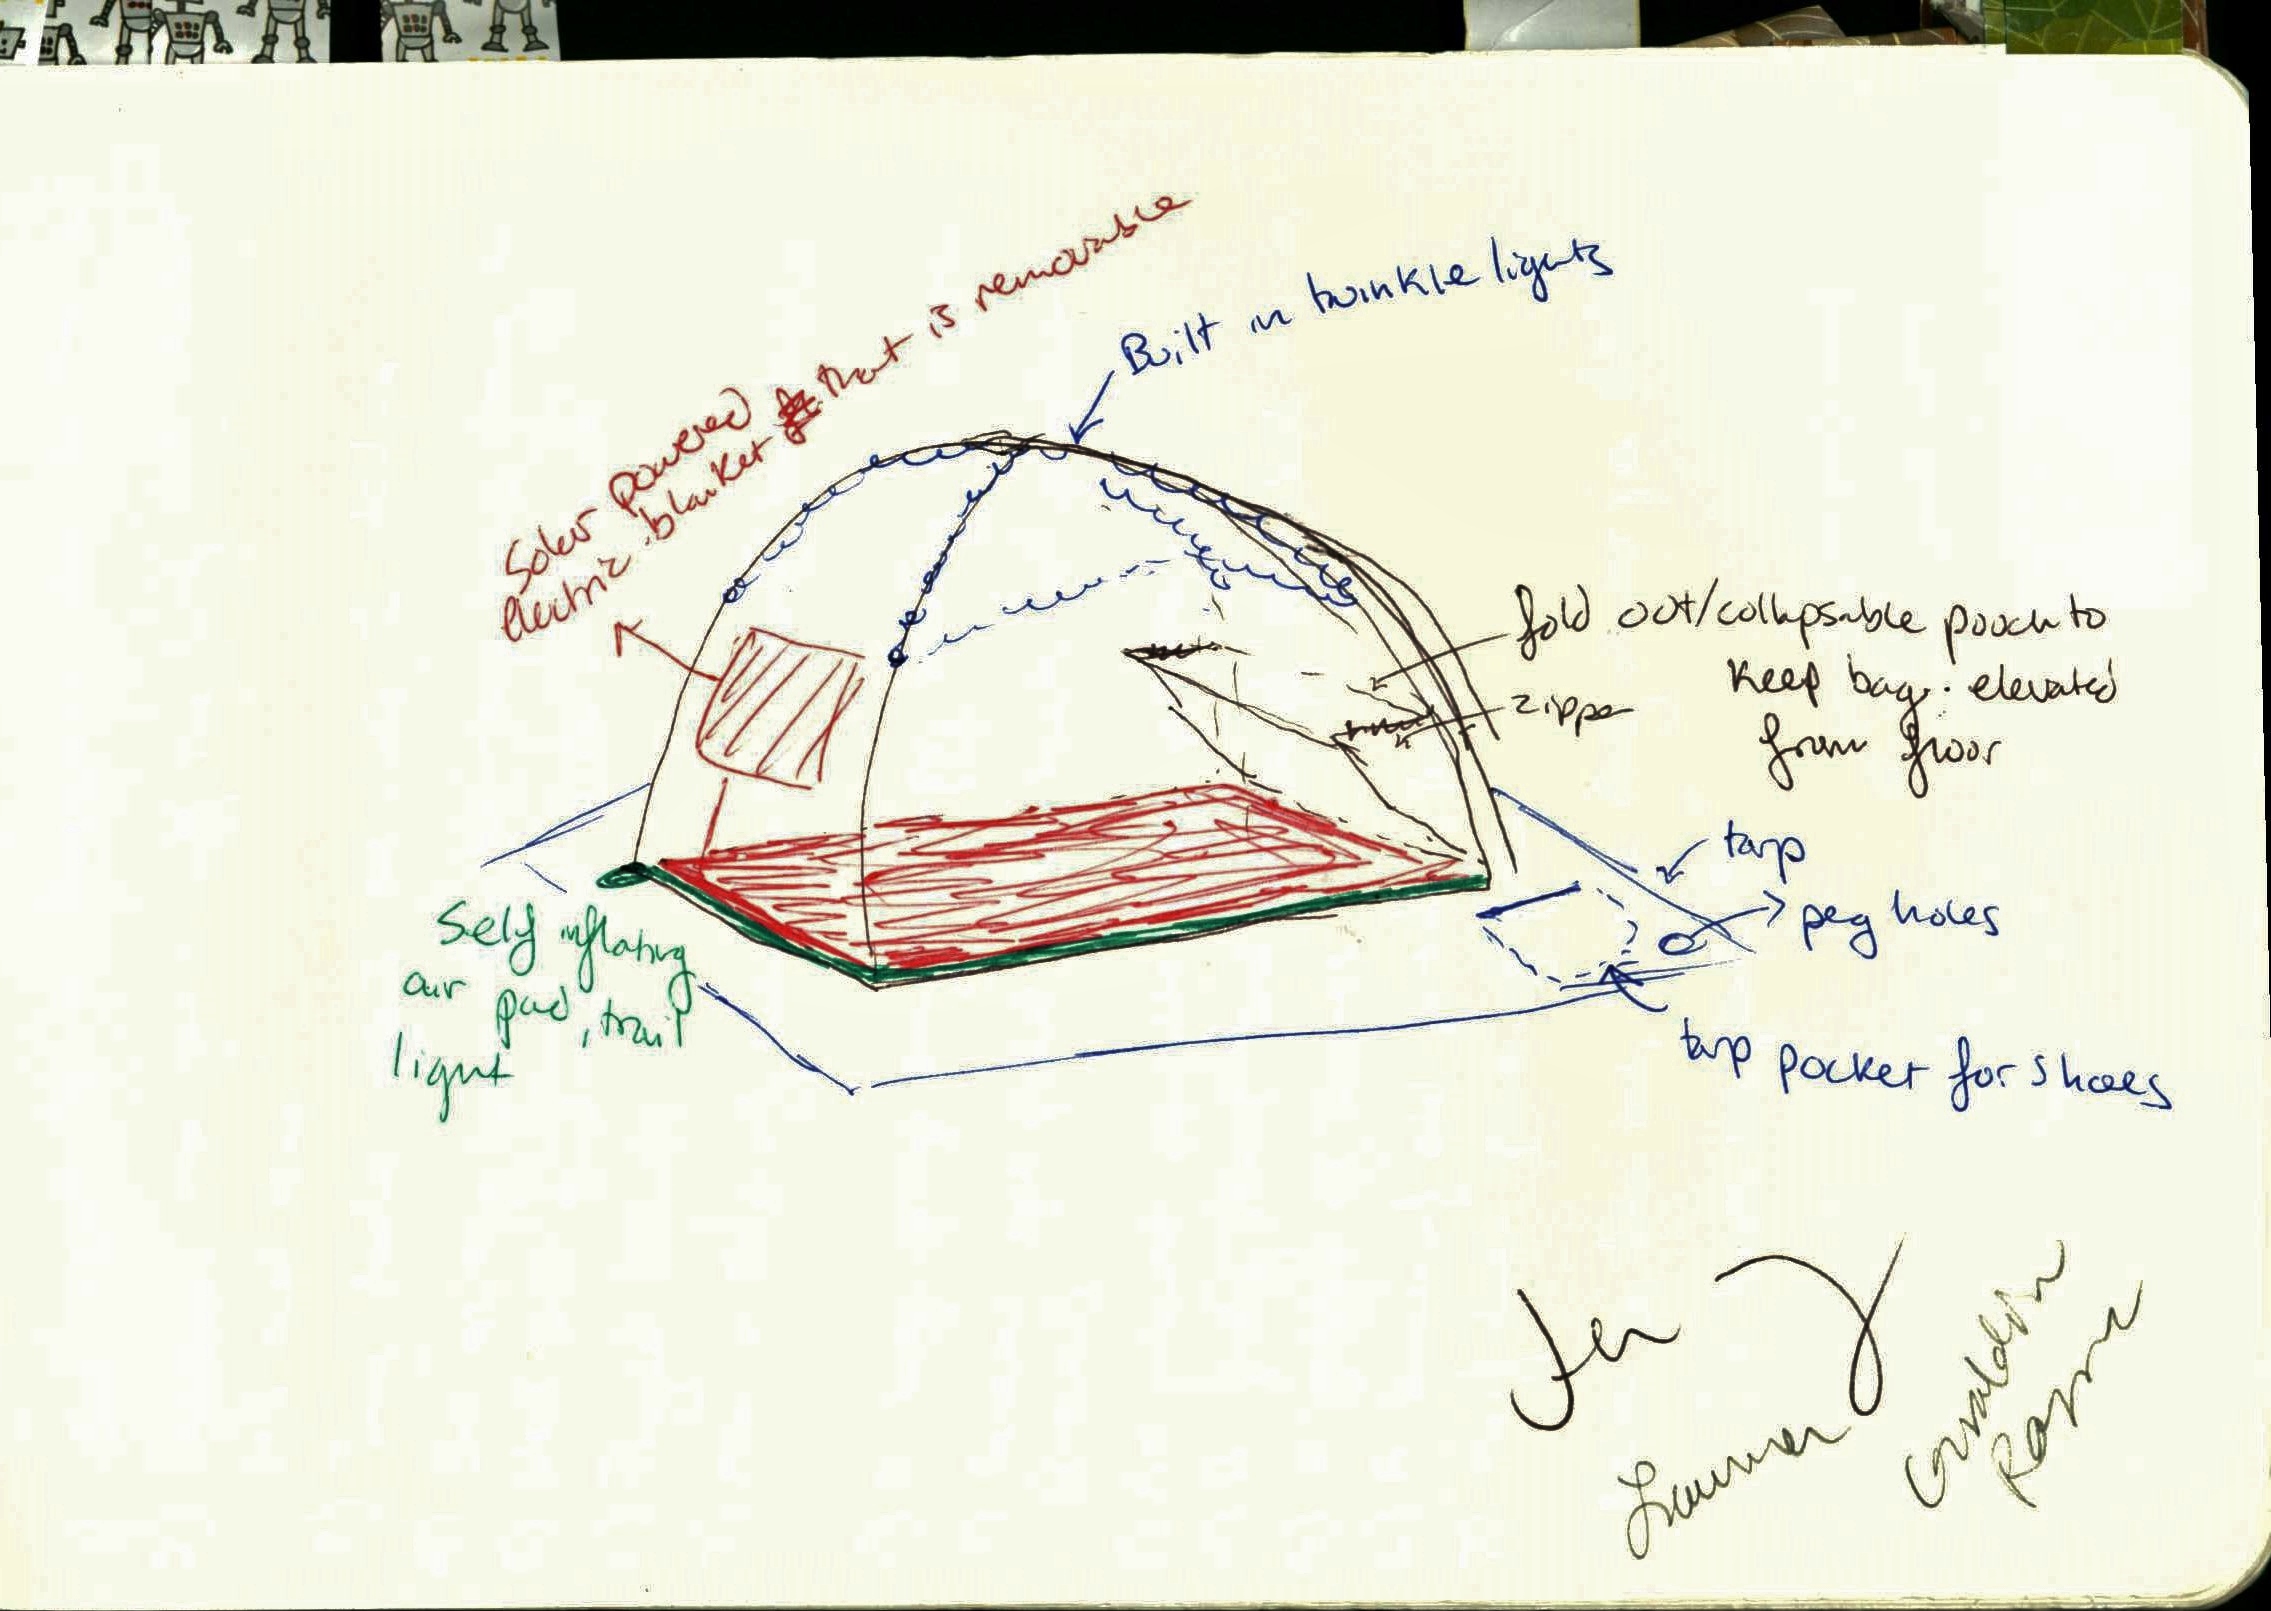 Solar powered
electric blanket that is removable
Built in twinkle lights
fold out/collapsable pooch to
keep bag elevated
from floor
zipper
tarp
peg holes
tarp pocket for shoes
Self inflating
air pad, trail
light
Jen